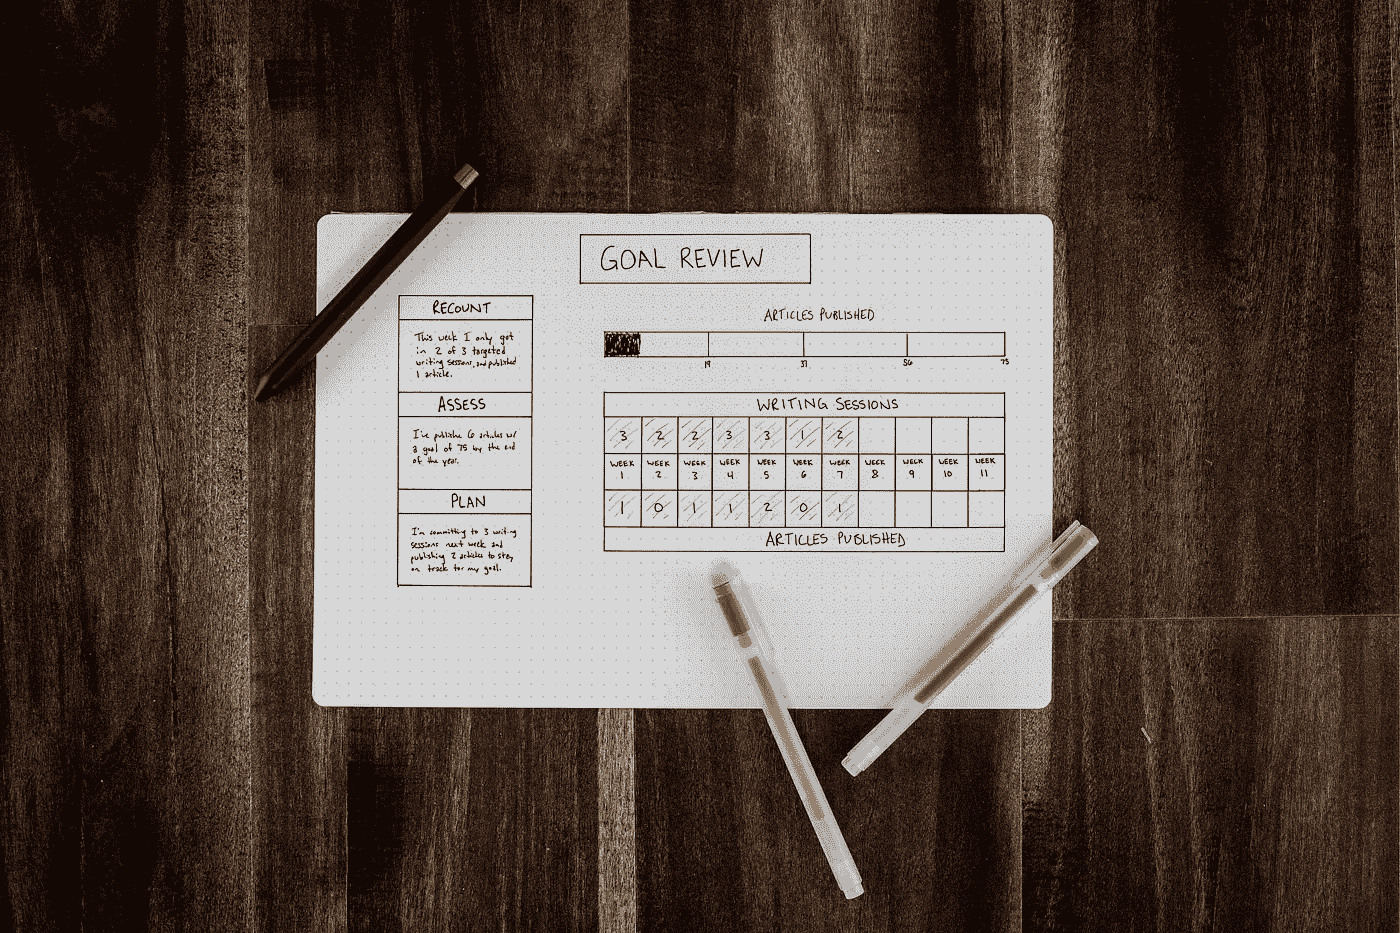 GOAL REVIEW
RECOUNT
This week I only got
in 2 of 3 targeted
writing sessions, and published
1 article.
ASSESS
I've publishe 6 articles w/
a goal of 75 by the end
of the year.
PLAN
I'm committing to 3 writing
sessions next week and
publishing 2 articles to stay
on track for my goal.
ARTICLES PUBLISHED
19 37 56 75
WRITING SESSIONS
3 2 2 3 3 1 2
WEEK 1 WEEK 2 WEEK 3 WEEK 4 WEEK 5 WEEK 6 WEEK 7 WEEK 8 WEEK 9 WEEK 10 WEEK 11
1 0 1 1 2 0 1
ARTICLES PUBLISHED